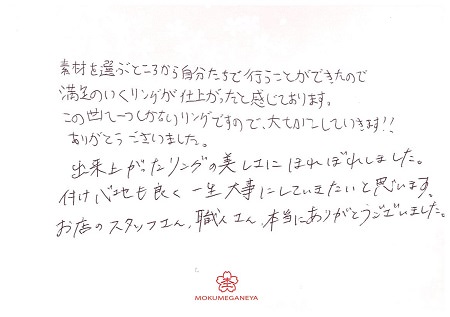 素材を選ぶところから自分たちで行うことができたので
満足のいくリングが仕上がったと感じております。
この世に一つしかないリングですので、大切にしていきます!!
ありがとうございました。
出来上がったリングの美しさにほれぼれしました。
付け心地も良く一生大事にしていきたいと思います。
お店のスタッフさん、職人さん、本当にありがとうございました。
MOKUMEGANEYA